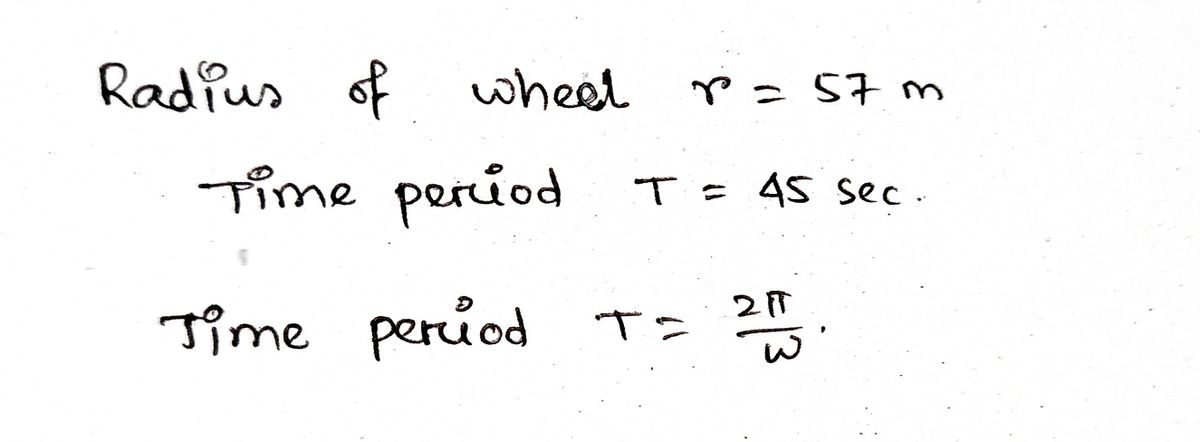 Radius of wheel r = 57 m
Time period T = 45 sec.
Time period T = 2π/ω.